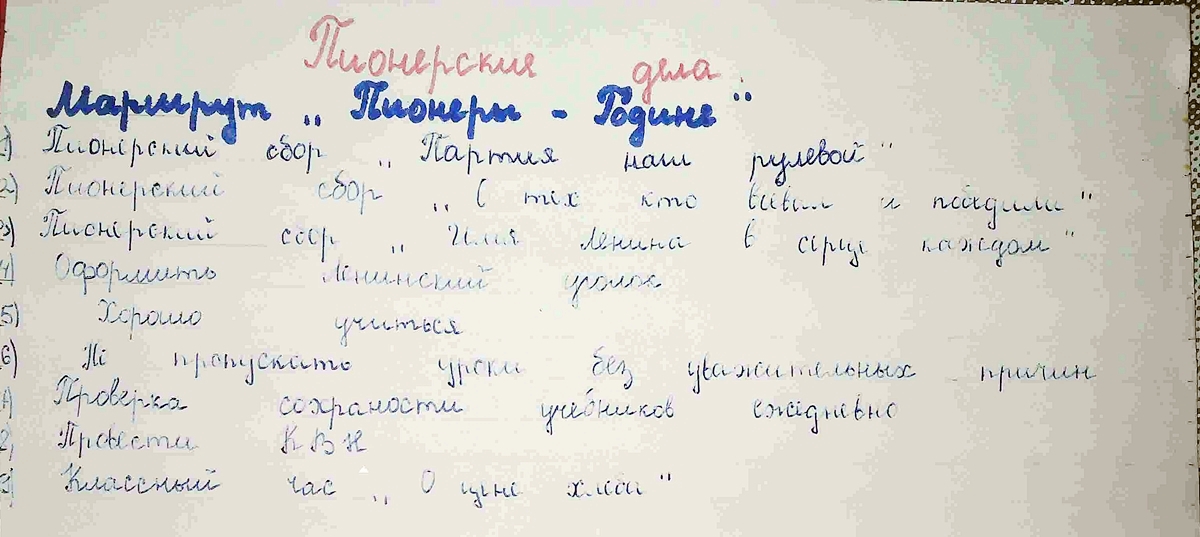 Пионерския дела
Маршрут „ Пионеры - Родине "
1) Пионерский сбор „ Партия наш рулевой "
2) Пионерский сбор „ О тех кто воевал и победили "
3) Пионерский сбор „ Имя Ленина в сердце каждом "
4) Оформить Ленинский уголок
5) Хорошо учиться
6) Не пропускать уроки без уважительных причин
1) Проверка сохраности учебников ежедневно
2) Провести КВН
3) Классный час „ О цене хлеба "